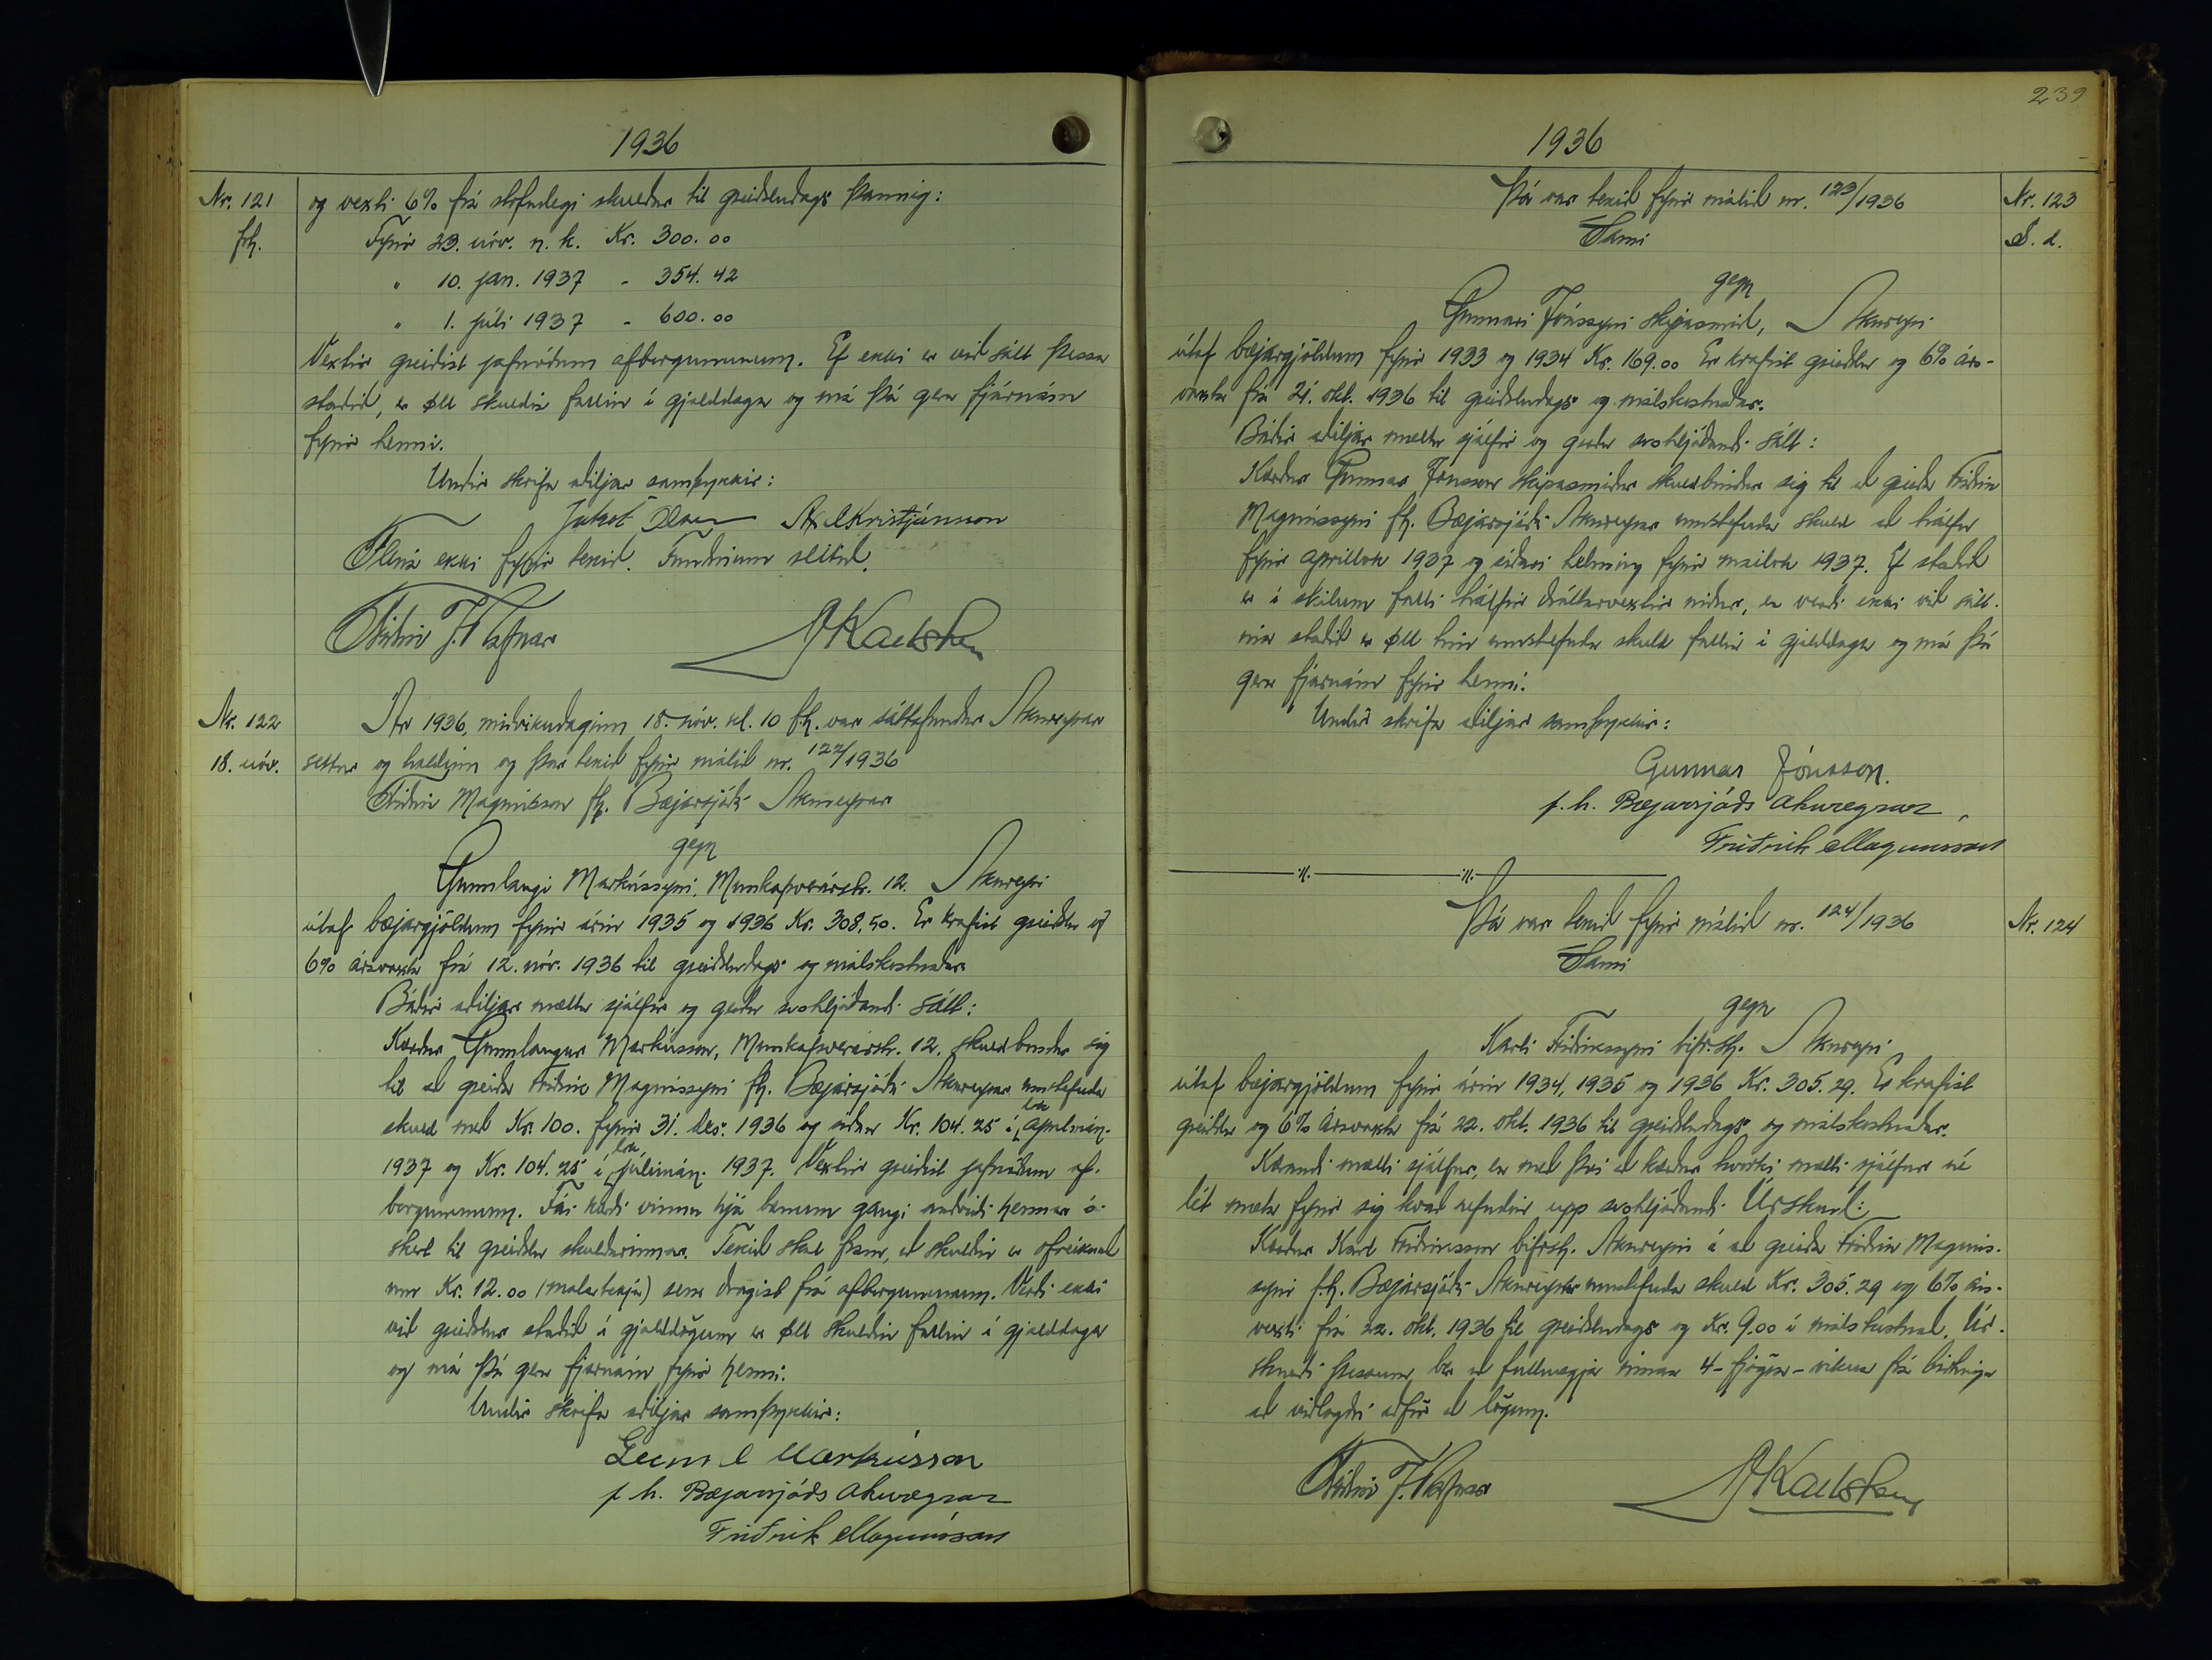 1936
Nr. 121 og vexti 6% frá stofndegi skuldar til greiðsludags þannig:
frh. Fyrir 23. nóv. n.k. Kr. 300.00
" 10. jan. 1937 - 354.42
" 1. júlí 1937 - 600.00
Vextir greiðist jafnóðum afborgunum. Ef ekki er við sátt þessa
staðið, er øll skuldin fallin í gjalddaga og má þá gera fjárnám
fyrir henni.
Undir skrifa aðiljar samþykkir:
Jakob Axel Kristjánsson
Fleira ekki fyrir tekið. Fundinum slitið.
Friðrik J. Rafnar
Nr. 122 Ár 1936, miðvikudaginn 18. nóv. kl. 10 f.h. var sáttafundur Akureyrar
18. nóv. settur og haldinn og þar tekið fyrir málið nr. 122/1936
Friðrik Magnússon fh. Bæjarsjóðs Akureyrar
gegn
Gunnlaugi Markússyni, Munkaþverárstr. 12. Akureyri
útaf bæjargjöldum fyrir árin 1935 og 1936 Kr. 308.50. Er krafist greiðslu og
6% ársvaxta frá 12. nóv. 1936 til greiðsludags og málskostnaðar
Báðir aðiljar mættu sjálfir og gerðu svohljóðandi sátt:
Kærður Gunnlaugur Markússon, Munkaþverárstr. 12. skuldbindur sig
til að greiða Friðrik Magnússyni fh. Bæjarsjóðs Akureyrar umstefnda
skuld með Kr. 100. fyrir 31. des. 1936 og síðan Kr. 104.25 í lok aprílmán.
1937 og Kr. 104.25 í lok júlímán. 1937. Vextir greiðist jafnóðum af-
borgununum. Fái kærði vinnu hjá bænum gangi andvirði hennar ó-
skert til greiðslu skuldarinnar. Tekið skal fram, að skuldin er ofreiknuð
um Kr. 12.00 (malartekja) sem dragist frá afborgununum. Verði ekki
við greiðslur staðið í gjalddögum er øll skuldin fallin í gjalddaga
og má þá gera fjárnám fyrir henni.
Undir skrifa aðiljar samþykkir:
Gunnl Markússon
f. h. Bæjarsjóðs Akureyrar
Friðrik Magnússon
239
1936
Þá var tekið fyrir málið nr. 123/1936 Nr. 123
Sami S. d.
gegn
Gunnari Jónssyni skipasmið, Akureyri
útaf bæjargjöldum fyrir 1933 og 1934 Kr. 169.00 Er krafist greiðslu og 6% árs-
vaxta frá 21. okt. 1936 til greiðsludags og málskostnaðar.
Báðir aðiljar mættu sjálfir og gerðu svohljóðandi sátt:
Kærður Gunnar Jónsson skipasmiður skuldbindur sig til að greiða Friðrik
Magnússyni fh. Bæjarsjóðs Akureyrar umstefnda skuld að hálfu
fyrir apríllok 1937 og síðari helming fyrir maílok 1937. Ef staðið
er í skilum falli hálfir dráttarvextir niður, en verði ekki við sátt-
ina staðið er øll hin umstefnda skuld fallin í gjalddaga og má þá
gera fjárnám fyrir henni.
Undir skrifa aðiljar samþykkir:
Gunnar Jónsson.
f. h. Bæjarsjóðs Akureyrar,
Friðrik Magnússon
Þá var tekið fyrir málið nr. 124/1936 Nr. 124
Sami
gegn
Karli Friðrikssyni bifr.stj. Akureyri
útaf bæjargjöldum fyrir árin 1934, 1935 og 1936 Kr. 305.29. Er krafist
greiðslu og 6% ársvaxta frá 22. okt. 1936 til greiðsludags og málskostnaðar.
Kærandi mætti sjálfur, en með því að kærður hvorki mætti sjálfur né
lét mæta fyrir sig kvað nefndin upp svohljóðandi Úrskurð:
Kærður Karl Friðriksson bifrstj. Akureyri á að greiða Friðrik Magnús-
syni f.h. Bæjarsjóðs Akureyrar umstefnda skuld Kr. 305.29 og 6% árs-
vexti frá 22. okt. 1936 til greiðsludags og Kr. 9.00 í málskostnað. Úr-
skurði þessum ber að fullnægja innan 4-fjögra-vikna frá birtingu
að viðlagðri aðför að lögum.
Friðrik J. Rafnar